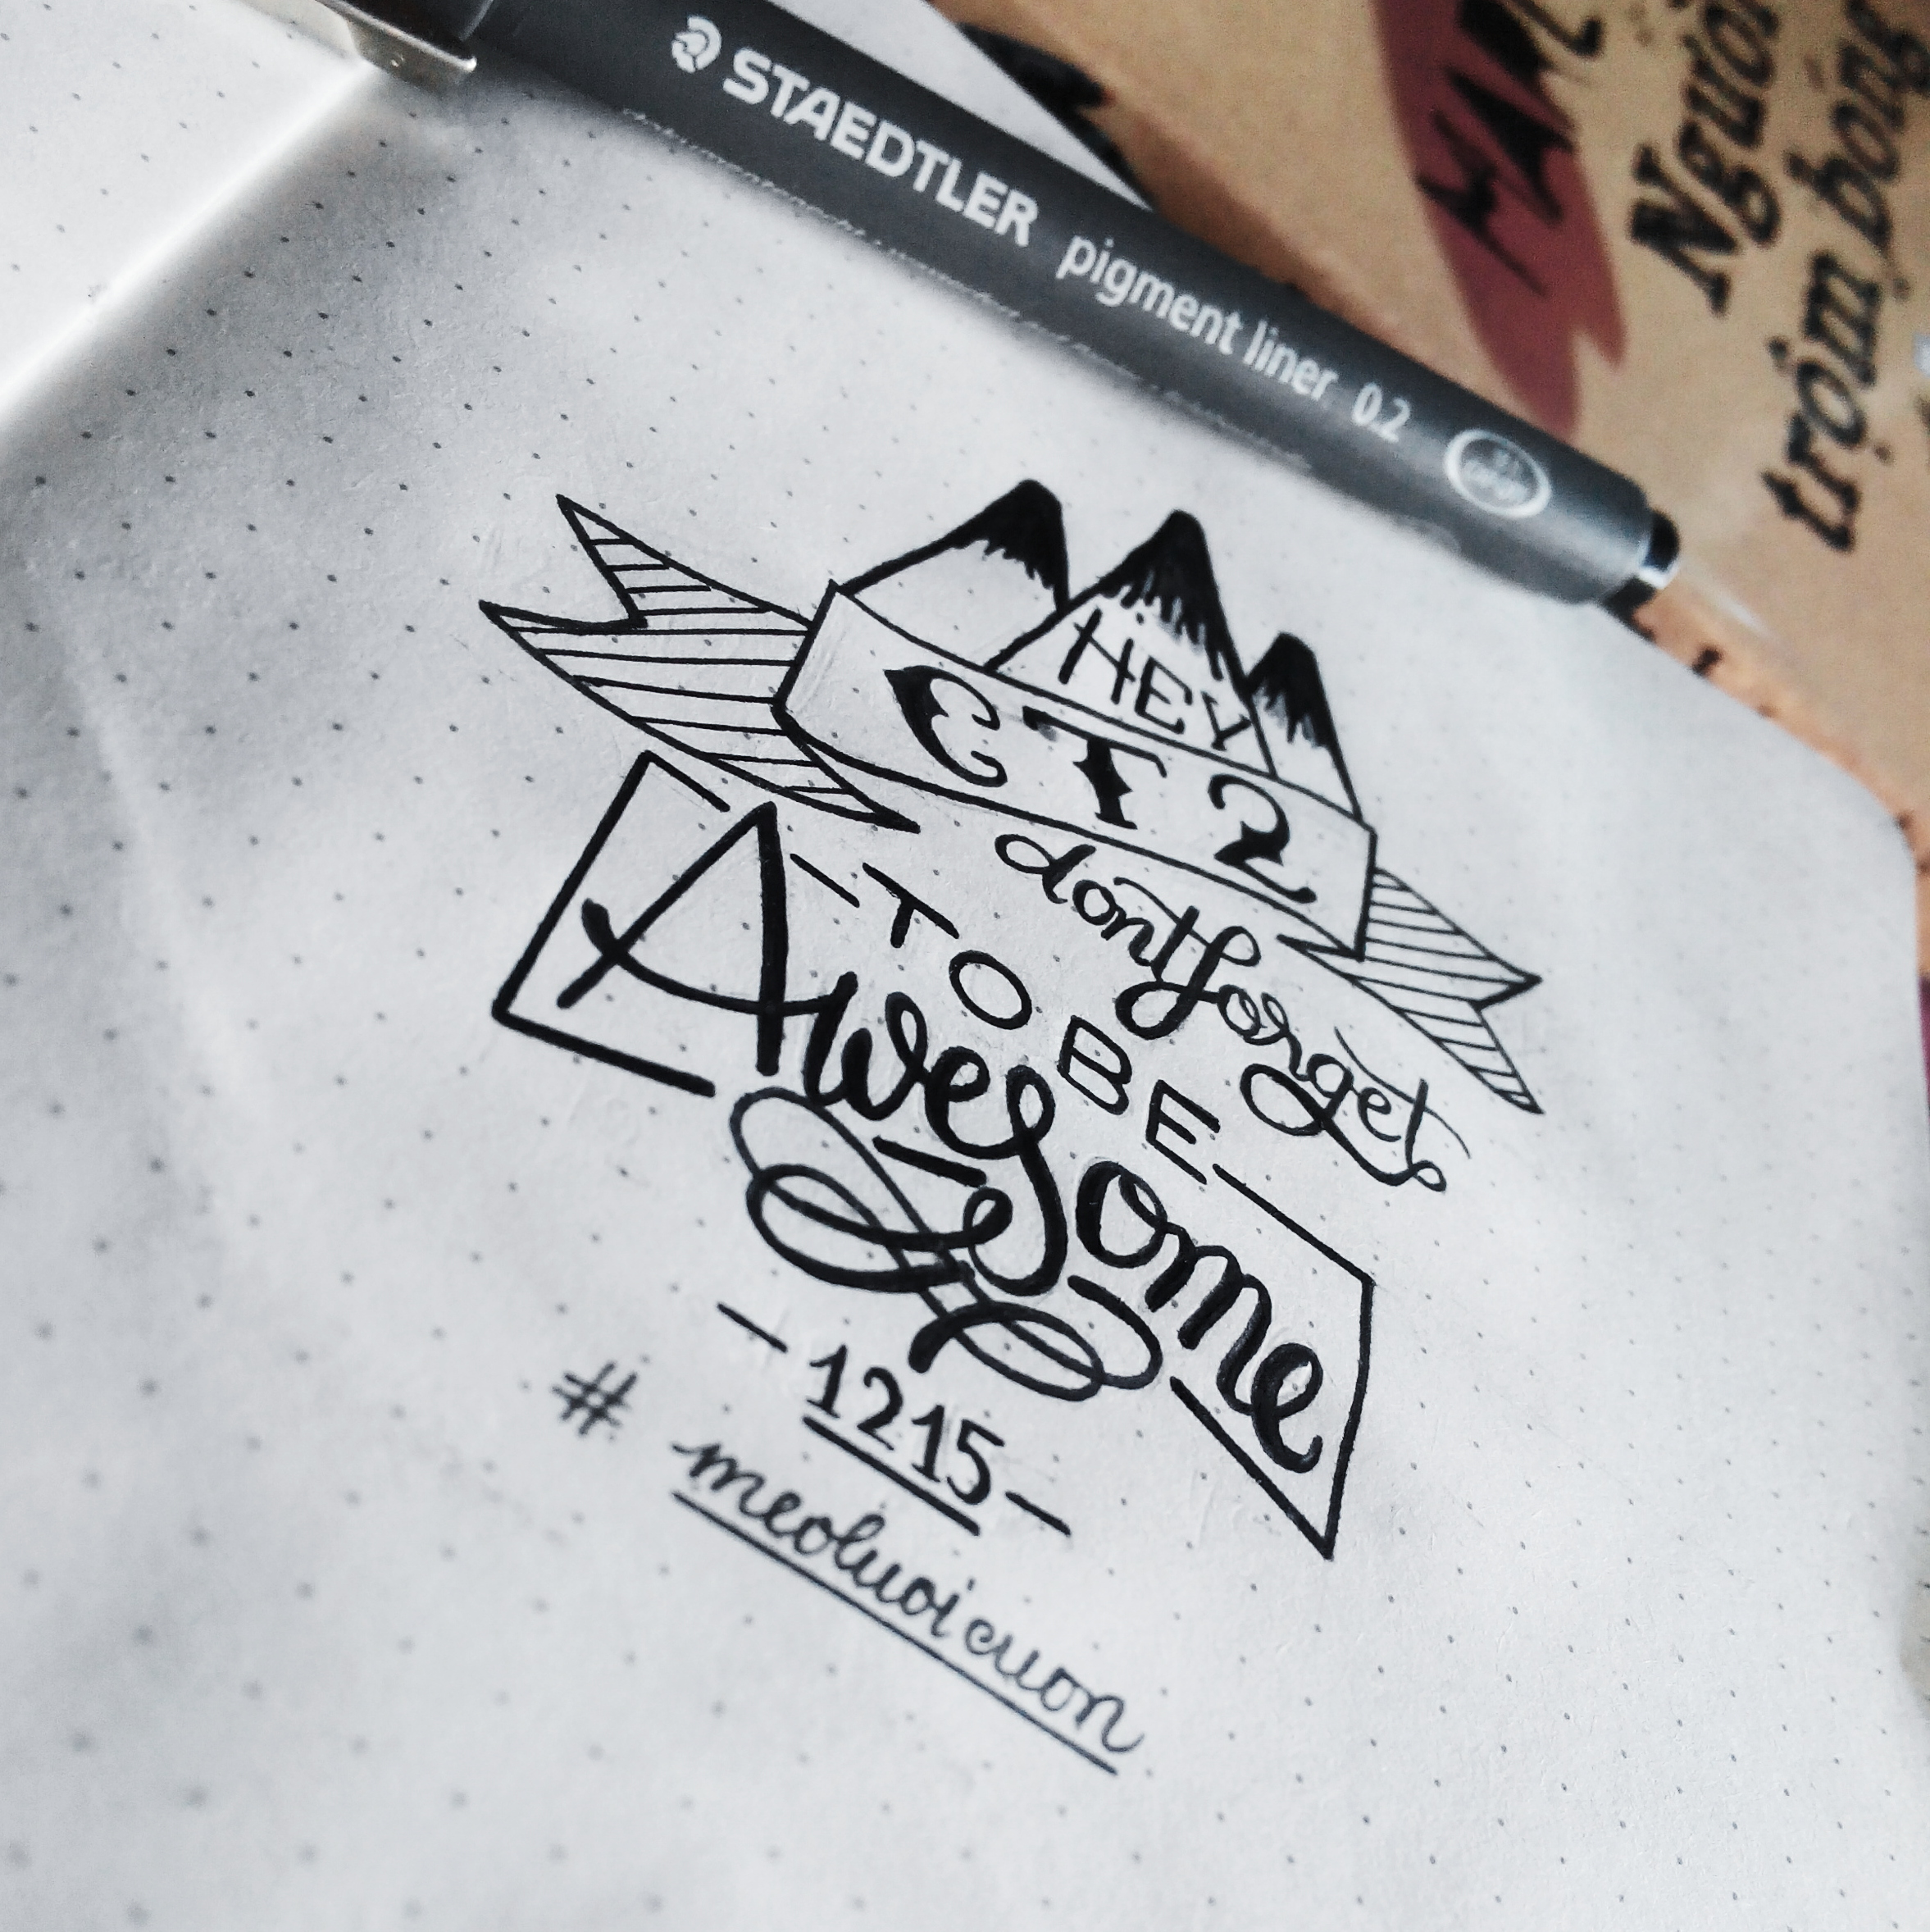 STAEDTLER pigment liner 0.2
Người
trộm bóng
HEY
CT2
don't forget
TO BE
Awesome
- 1215 -
# meoluoi cuon